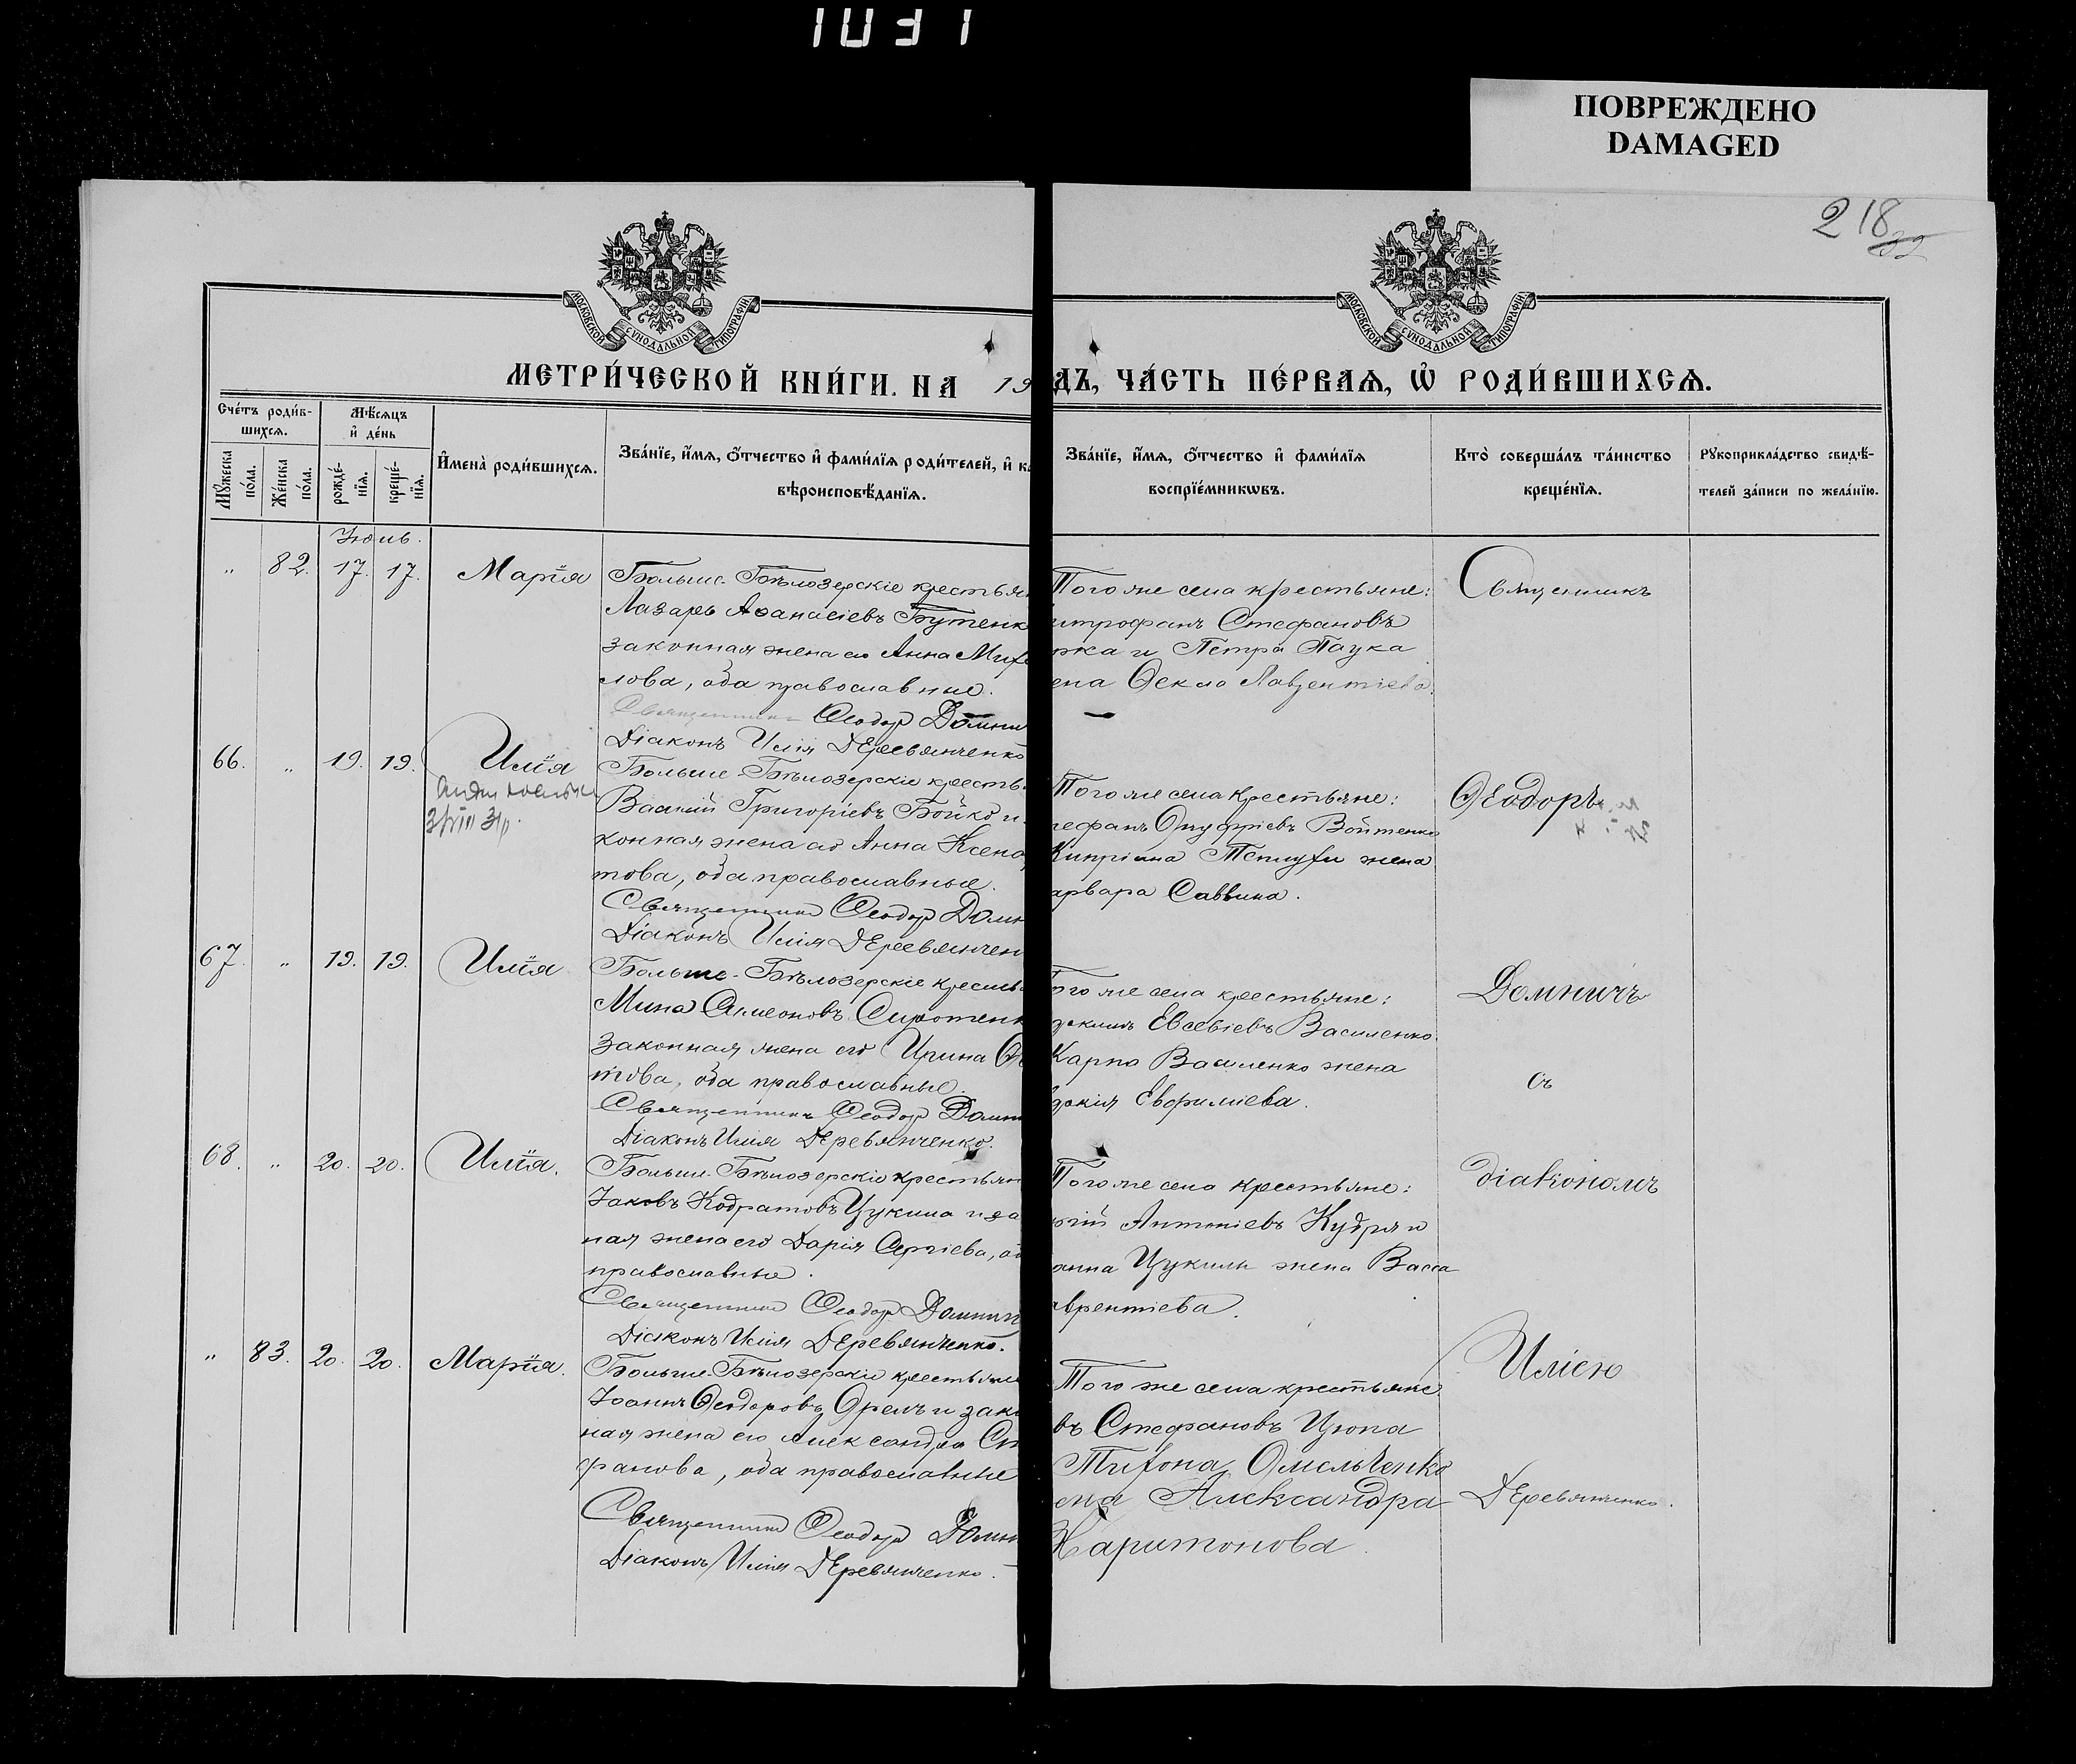 1031
ПОВРЕЖДЕНО
DAMAGED
218
32
МОСКОВСКОЙ СѴНОДАЛЬНОЙ ТИПОГРАФІИ
МОСКОВСКОЙ СѴНОДАЛЬНОЙ ТИПОГРАФІИ
МЕТРИ́ЧЕСКОЙ КНИ́ГИ. НА 19
ДЪ, ЧА́СТЬ ПЕ́РВАѦ, Ѡ҆ РОДИ́ВШИХСѦ.
Сче́тъ роди́в-
шихсѧ.
Мꙋ́жеска
по́ла.
Же́нска
по́ла.
Мѣ́сѧцъ
и҆ де́нь
рожде́-
нїѧ.
креще́-
нїѧ.
И҆мена̀ роди́вшихсѧ.
Зва́нїе, и҆́мѧ, ѻ҆́тчество и҆ фами́лїѧ роди́телей, и҆ ка
вѣроисповѣ́данїѧ.
Зва́нїе, и҆́мѧ, ѻ҆́тчество и҆ фами́лїѧ
воспрїе́мникωвъ.
Кто̀ соверша́лъ та́инство
креще́нїѧ.
Рꙋкоприкла́дство свидѣ́-
телей за́писи по жела́нїю.
Іюль.
„ 82. 17. 17. Марія
Больше-Бѣлозерскіе крестьян
Лазарь Аѳанасіевъ Бутенк
законная жена его Анна Миха
лова, оба православные.
Священникъ Ѳеодоръ Домни
Діаконъ Илія Деревянченко
Того же села крестьяне:
итрофанъ Стефановъ
рка и Петра Паука
ена Ѳекла Лаврентіева.
Священникъ
66. „ 19. 19. Илія
Больше-Бѣлозерскіе кресть
Василій Григоріевъ Бойко и
конная жена его Анна Ксено
това, оба православные.
Священникъ Ѳеодоръ Домн
Діаконъ Илія Деревянчен
Того же села крестьяне:
тефанъ Онуфріевъ Войтенко
Кипріана жена
арвара Саввина.
Ѳеодоръ
67. „ 19. 19. Илія
Больше-Бѣлозерскіе кресть
Мина Симеоновъ Сиротенк
законная жена его Ирина
това, оба православные.
Священникъ Ѳеодоръ Домн
Діаконъ Илія Деревянченко.
ого же села крестьяне:
Евсевіевъ Василенко
Карпа Василенко жена
докія Евфиміева.
Домничъ
съ
68. „ 20. 20. Илія.
Больше-Бѣлозерскіе крестьян
Іаковъ Кодратовъ Цукила и за
ная жена его Дарія Сергіева, об
православные.
Священникъ Ѳеодоръ Домнич
Діаконъ Илія Деревянченко.
Того же села крестьяне:
ргій Антоніевъ Кудря и
анна Цукилы жена Васса
аврентіева.
діакономъ
„ 83. 20. 20. Марія.
Больше-Бѣлозерскіе крестьяне
Іоаннъ Ѳеодоровъ Орелъ и зако
ная жена его Александра Сте
фанова, оба православные
Священникъ Ѳеодоръ Домн
Діаконъ Илія Деревянченко.
Того же села крестьяне
въ Стефановъ Цюпа
Тихона Омельченко
ена Александра
Харитонова.
Иліею
Деревянченко.